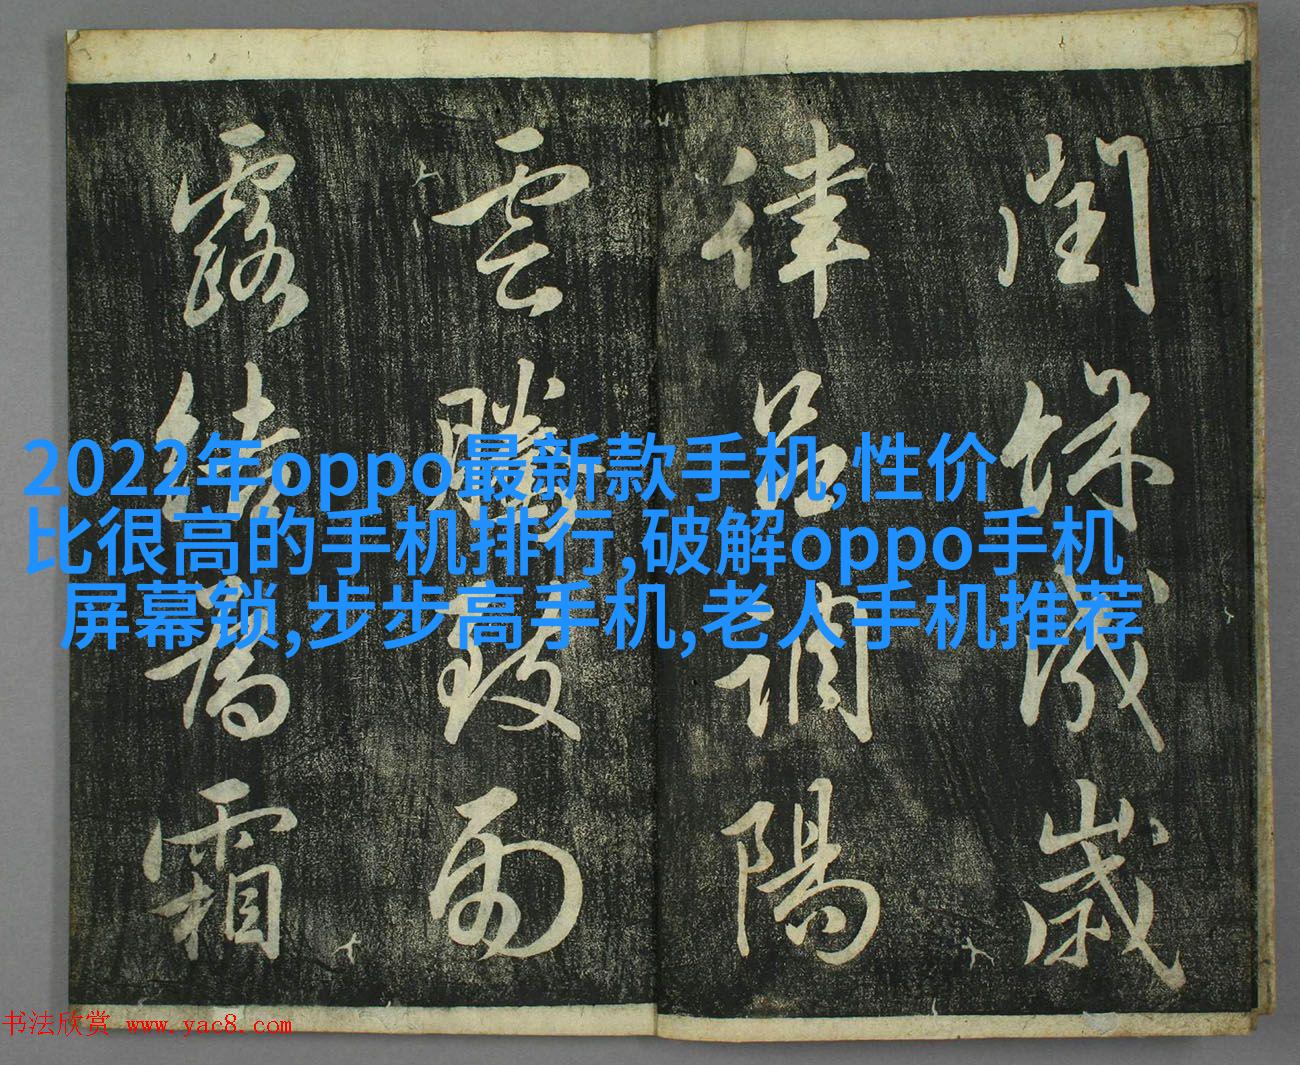 閏餘成歲
律呂調陽
雲騰致雨
露結為霜
2022年oppo最新款手机,性价
比很高的手机排行,破解oppo手机
屏幕锁,步步高手机,老人手机推荐
书法欣赏 www.yac8.com